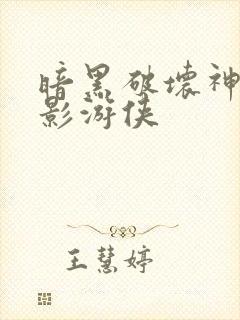 暗黑破坏神
影游侠
王慧婷